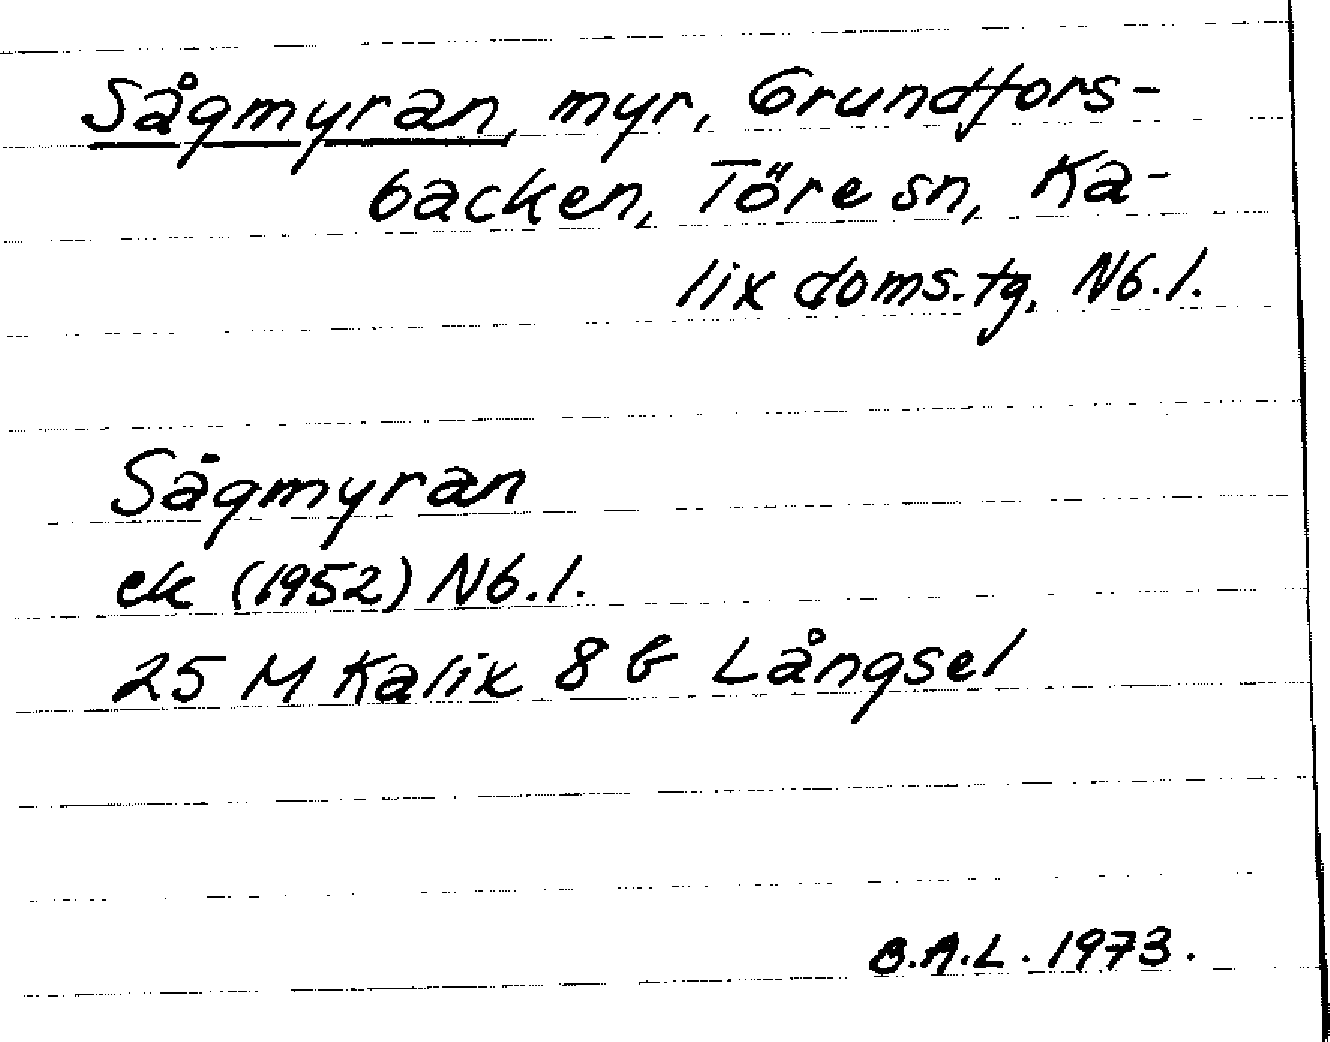 Sågmyran, myr, Grundfors-
backen, Töre sn, Ka-
lix doms.tg, Nb.l.
Sågmyran
ek (1952) Nb.l.
25 M Kalix 8 b Långsel
B.A.L. 1973.